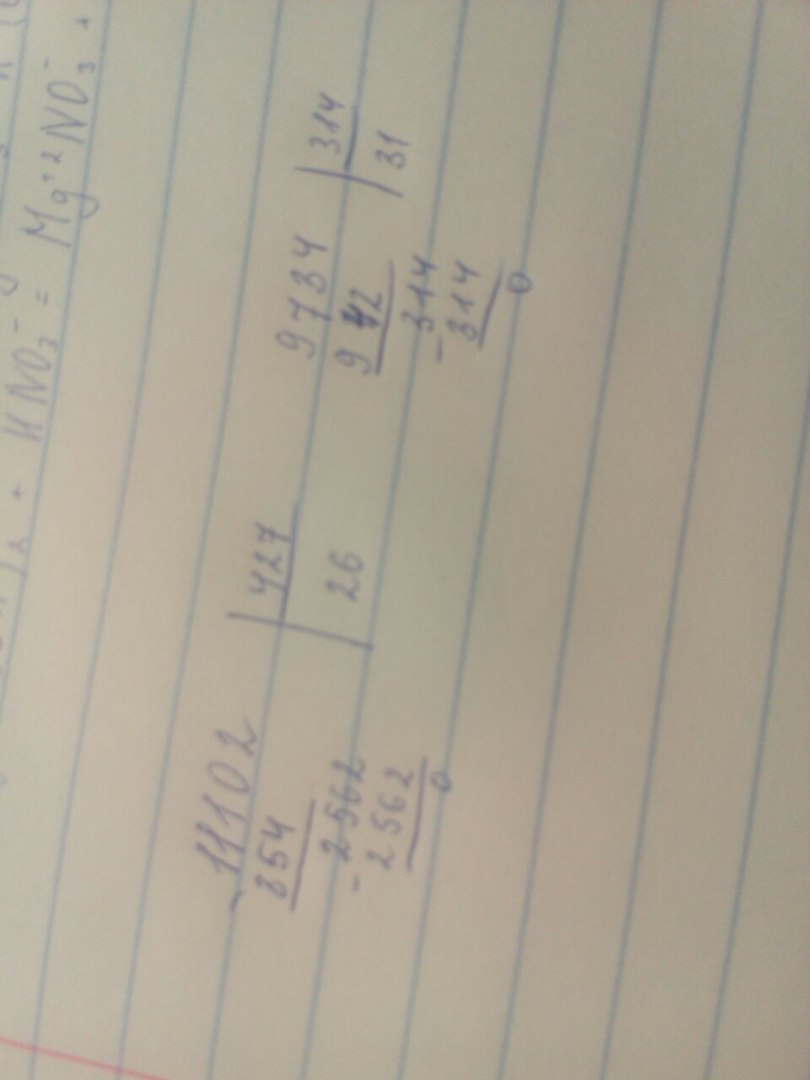 + HNO₃⁻ = Mg⁺²NO₃⁻ +
- 11102 | 427
854 | 26
- 2562
2562
0
9734 | 314
942 | 31
- 314
314
0